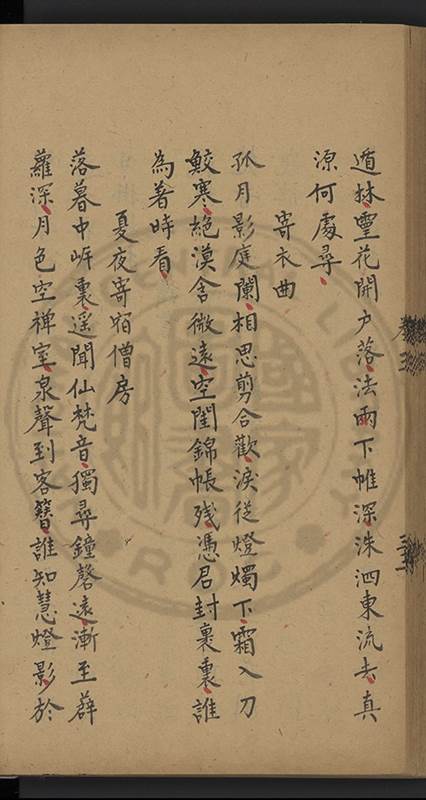 遁林靈花開户落法雨下帷深洙泗東流去真
源何處尋
寄衣曲
孤月影庭闌相思剪合歡淚從燈燭下霜入刀
鮫寒絶漠含微遠空閨錦帳殘憑君封裹裏誰
為著時看
夏夜寄宿僧房
落暮中峅裏遥聞仙梵音獨尋鐘磬遠漸至薜
蘿深月色空禅室泉聲到客簪誰知慧燈影於